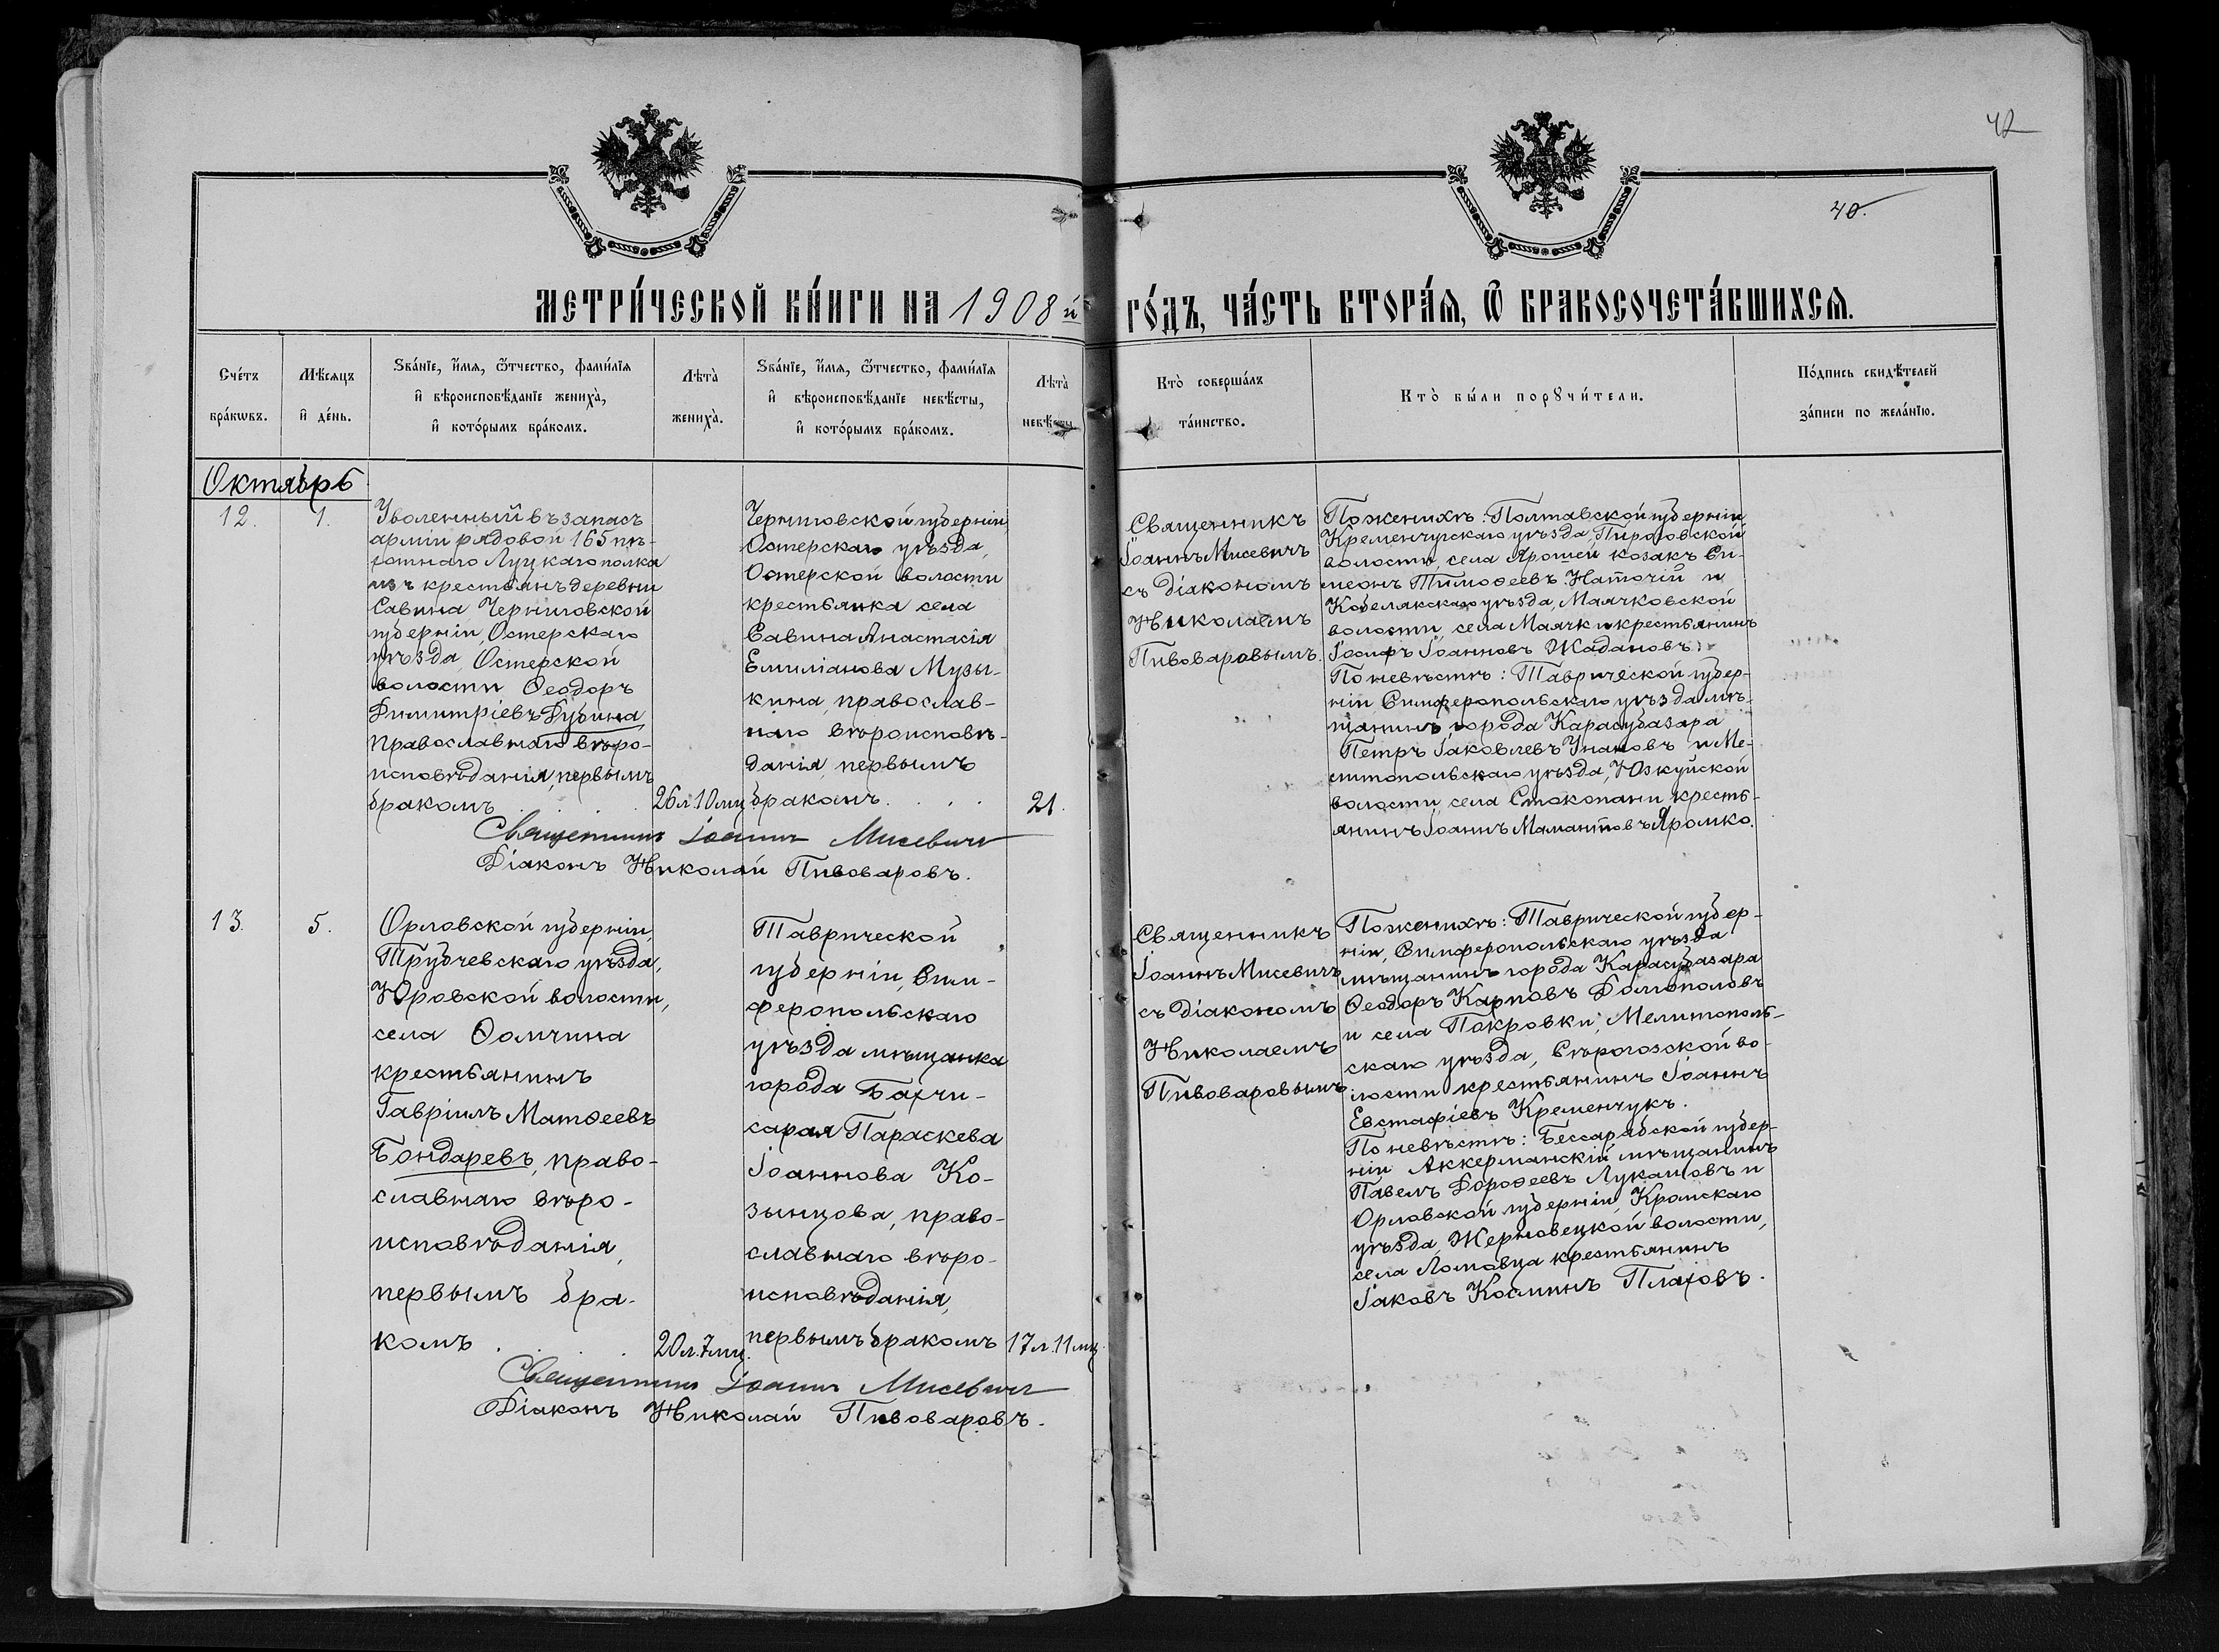 42
40.
МЕТРИ́ЧЕСКОЙ КНИ́ГИ НА 1908 й ГО́ДЪ, ЧА́СТЬ ВТОРА́Ѧ, Ѽ БРАКОСОЧЕТА́ВШИХСѦ.
Сче́тъ
бра́кѡвъ.
Мѣ́сяцъ
и де́нь.
Ѕва́нїе, и́мѧ, ѻ́тчество, фами́лїѧ
и вѣроисповѣ́данїе жениха̀,
и кото́рымъ бра́комъ.
Лѣта̀
жениха̀.
Ѕва́нїе, и́мѧ, ѻ́тчество, фами́лїѧ
и вѣроисповѣ́данїе невѣ́сты,
и кото́рымъ бра́комъ.
Лѣта̀
невѣ́сты
Кто̀ соверша́лъ
та́инство.
Кто̀ бы́ли порꙋчи́тели.
По́дпись свидѣ́телей
за́писи по жела́нїю.
Октябрь
12.
1.
Уволенный въ запасъ
арміи рядовой 165 пѣ-
хотнаго Луцкаго полка
изъ крестьянъ деревни
Савина Черниговской
губерніи, Остерскаго
уѣзда, Остерской
волости Ѳеодоръ
Димитріевъ Дубина,
православнаго вѣро-
исповѣданія, первымъ
бракомъ . . . .
26 л. 10 мц
Черниговской губерніи,
Остерскаго уѣзда,
Остерской волости
крестьянка села
Савина Анастасія
Емиліанова Музы-
кина, православ-
наго вѣроисповѣ-
данія, первымъ
бракомъ . . . .
21.
Священникъ
Іоаннъ Мисевичъ
съ діакономъ
Николаемъ
Пивоваровымъ.
По женихѣ: Полтавской губерніи
Кременчугскаго уѣзда, Пироговской
волости, села Ярошей козакъ Си-
меонъ Тимоѳеевъ Наточій и
Кобелякскаго уѣзда, Маячковской
волости, села Маячки крестьянинъ
Іосифъ Іоанновъ Жадановъ.
По невѣстѣ: Таврической губер-
ніи, Симферопольскаго уѣзда мѣ-
щанинъ города Карасубазара
Петръ Іаковлевъ Унановъ и Ме-
литопольскаго уѣзда, Юзкуйской
волости, села Стокопани кресть-
янинъ Іоаннъ Мамантовъ Яромко.
Священникъ Іоаннъ Мисевичъ
Діаконъ Николай Пивоваровъ.
13.
5.
Орловской губерніи,
Трубчевскаго уѣзда,
Юровской волости,
села Ѳомчина
крестьянинъ
Гавріилъ Матѳеевъ
Бондаревъ, право-
славнаго вѣро-
исповѣданія,
первымъ бра-
комъ . . .
20 л. 7 мц.
Таврической
губерніи, Сим-
феропольскаго
уѣзда мѣщанка
города Бахчи-
сарая Параскева
Іоаннова Ко-
зынцова, право-
славнаго вѣро-
исповѣданія,
первымъ бракомъ
17 л. 11 мц.
Священникъ
Іоаннъ Мисевичъ
съ діакономъ
Николаемъ
Пивоваровымъ
По женихѣ: Таврической губер-
ніи, Симферопольскаго уѣзда
мѣщанинъ города Карасубазара
Ѳеодоръ Карповъ Долгополовъ
и села Покровки, Мелитополь-
скаго уѣзда, Сѣрогозской во-
лости крестьянинъ Іоаннъ
Евстафіевъ Кременчукъ.
По невѣстѣ: Бессарабской губер-
ніи Аккерманскій мѣщанинъ
Павелъ Дороѳеевъ Лукашовъ и
Орловской губерніи, Кромскаго
уѣзда, Жерновецкой волости,
села Ломовца крестьянинъ
Іаковъ Косминъ Плаховъ.
Священникъ Іоаннъ Мисевичъ
Діаконъ Николай Пивоваровъ.